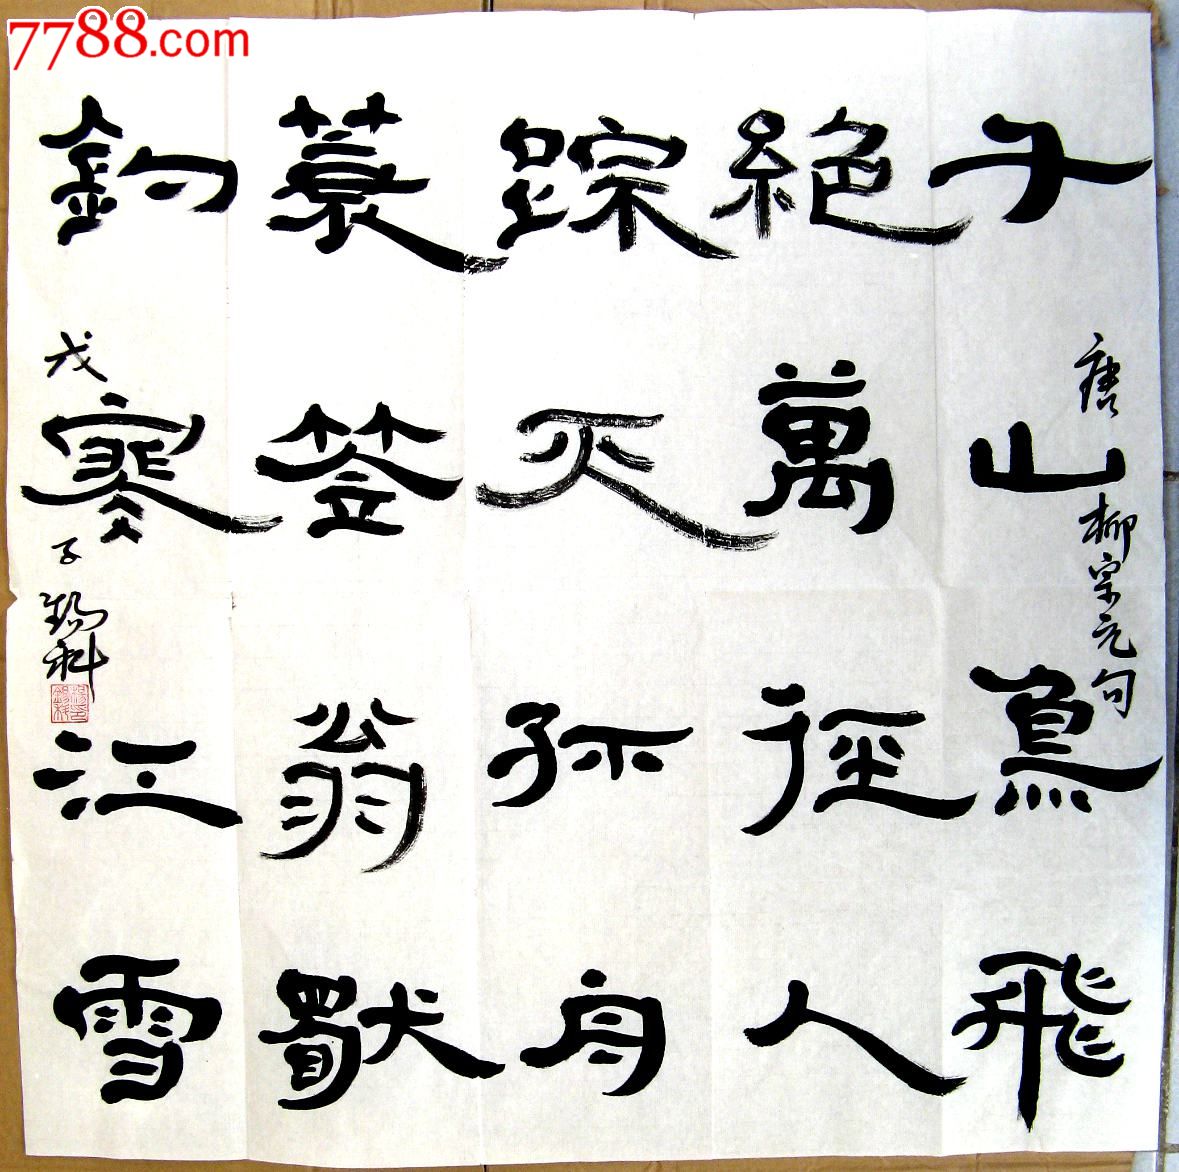 7788.com
千山鳥飛
絶萬徑人
踪灭孤舟
蓑笠翁獨
釣寒江雪
唐柳宗元句
戊子錫科